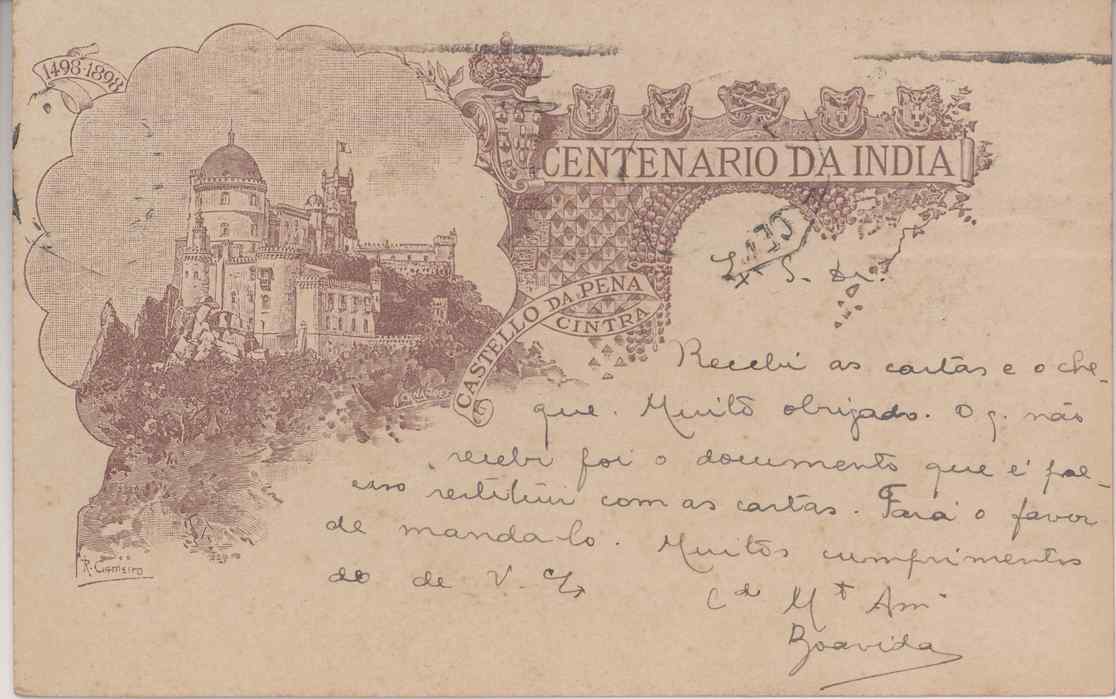 1498-1898
CENTENARIO DA INDIA
CASTELLO DA PENA
CINTRA
R. Gameiro
S. Dr.
Recebi as cartas e o che-
que. Muito obrigado. O q. não
recebi foi o documento que é pre-
ciso restituir com as cartas. Fará o favor
de manda-lo. Muitos cumprimentos
do de V.
Cdo Mto Am
Boavida